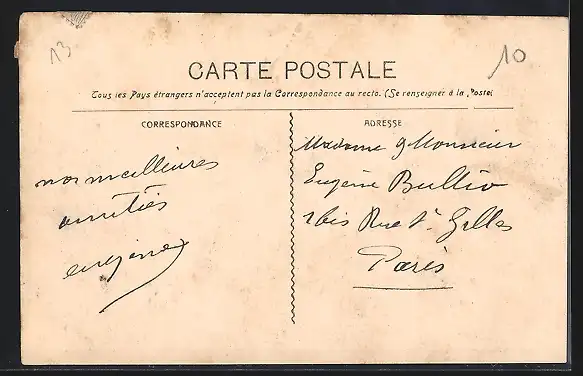 13
10
CARTE POSTALE
Tous les Pays étrangers n'acceptent pas la Correspondance au recto. (Se renseigner à la Poste)
CORRESPONDANCE
nos meilleures
amitiés
eugénie
ADRESSE
Madame & Monsieur
Eugène Bullio
1 bis Rue St Gilles
Paris